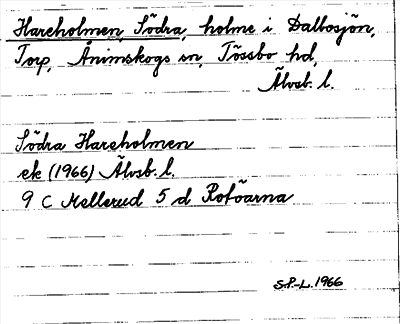 Hareholmen, Södra, holme i Dalbosjön,
Torp, Ånimskogs sn, Tössbo hd,
Älvsb. l.
Södra Hareholmen
ek (1966) Älvsb. l.
9 C Mellerud 5 d Rotöarna
S.P.-L. 1966